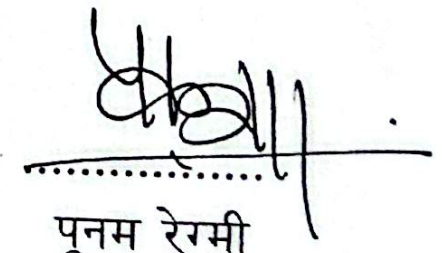 पूनम रेग्मी